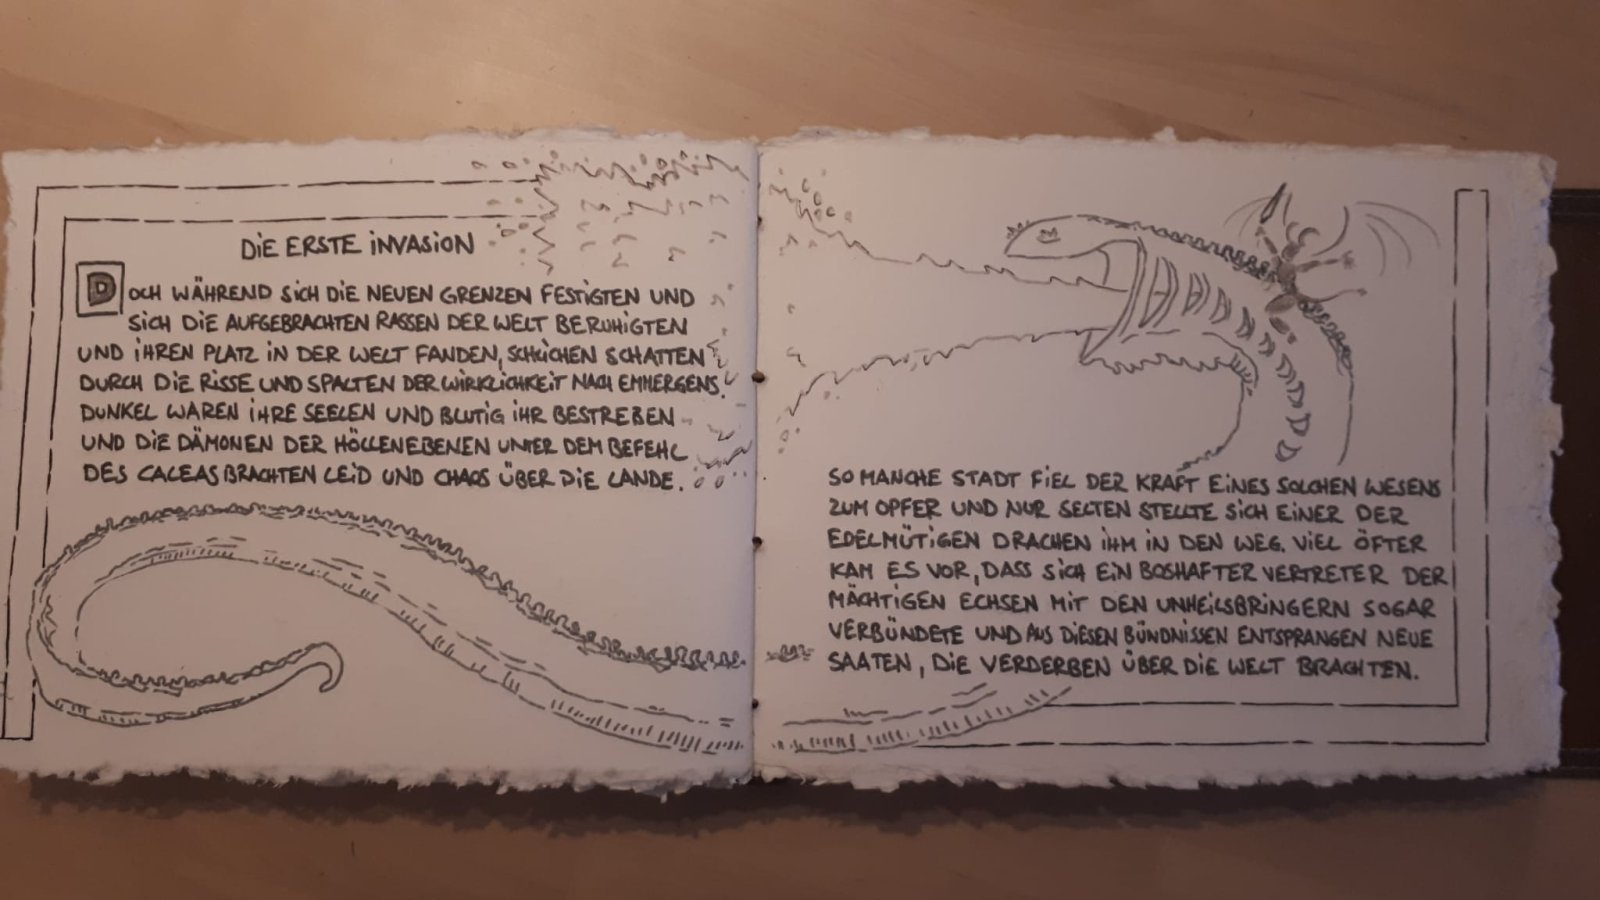 DIE ERSTE INVASION
DOCH WÄHREND SICH DIE NEUEN GRENZEN FESTIGTEN UND
SICH DIE AUFGEBRACHTEN RASSEN DER WELT BERUHIGTEN
UND IHREN PLATZ IN DER WELT FANDEN, SCHLICHEN SCHATTEN
DURCH DIE RISSE UND SPALTEN DER WIRKLICHKEIT NACH EMMERGENS.
DUNKEL WAREN IHRE SEELEN UND BLUTIG IHR BESTREBEN
UND DIE DÄMONEN DER HÖLLENEBENEN UNTER DEM BEFEHL
DES CALEAS BRACHTEN LEID UND CHAOS ÜBER DIE LANDE.
SO MANCHE STADT FIEL DER KRAFT EINES SOLCHEN WESENS
ZUM OPFER UND NUR SELTEN STELLTE SICH EINER DER
EDELMÜTIGEN DRACHEN IHM IN DEN WEG. VIEL ÖFTER
KAM ES VOR, DASS SICH EIN BOSHAFTER VERTRETER DER
MÄCHTIGEN ECHSEN MIT DEN UNHEILSBRINGERN SOGAR
VERBÜNDETE UND AUS DIESEN BÜNDNISSEN ENTSPRANGEN NEUE
SAATEN, DIE VERDERBEN ÜBER DIE WELT BRACHTEN.